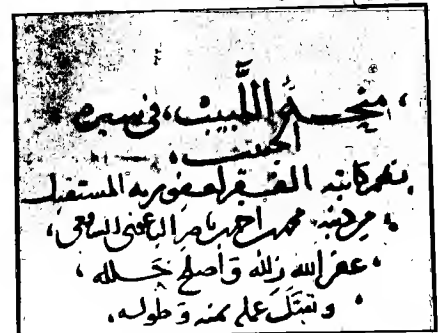 ، منحة اللَّبيب، في سيره
الحبيب،
نظم كاتبه الفقير لعفو ربه المستقيل
من ذنبه محمد احمد ناصر الباعونى الشافعى،
، غفر الله زلله وأصلح خلله،
وتقبَّل عمله بمنه وطوله،